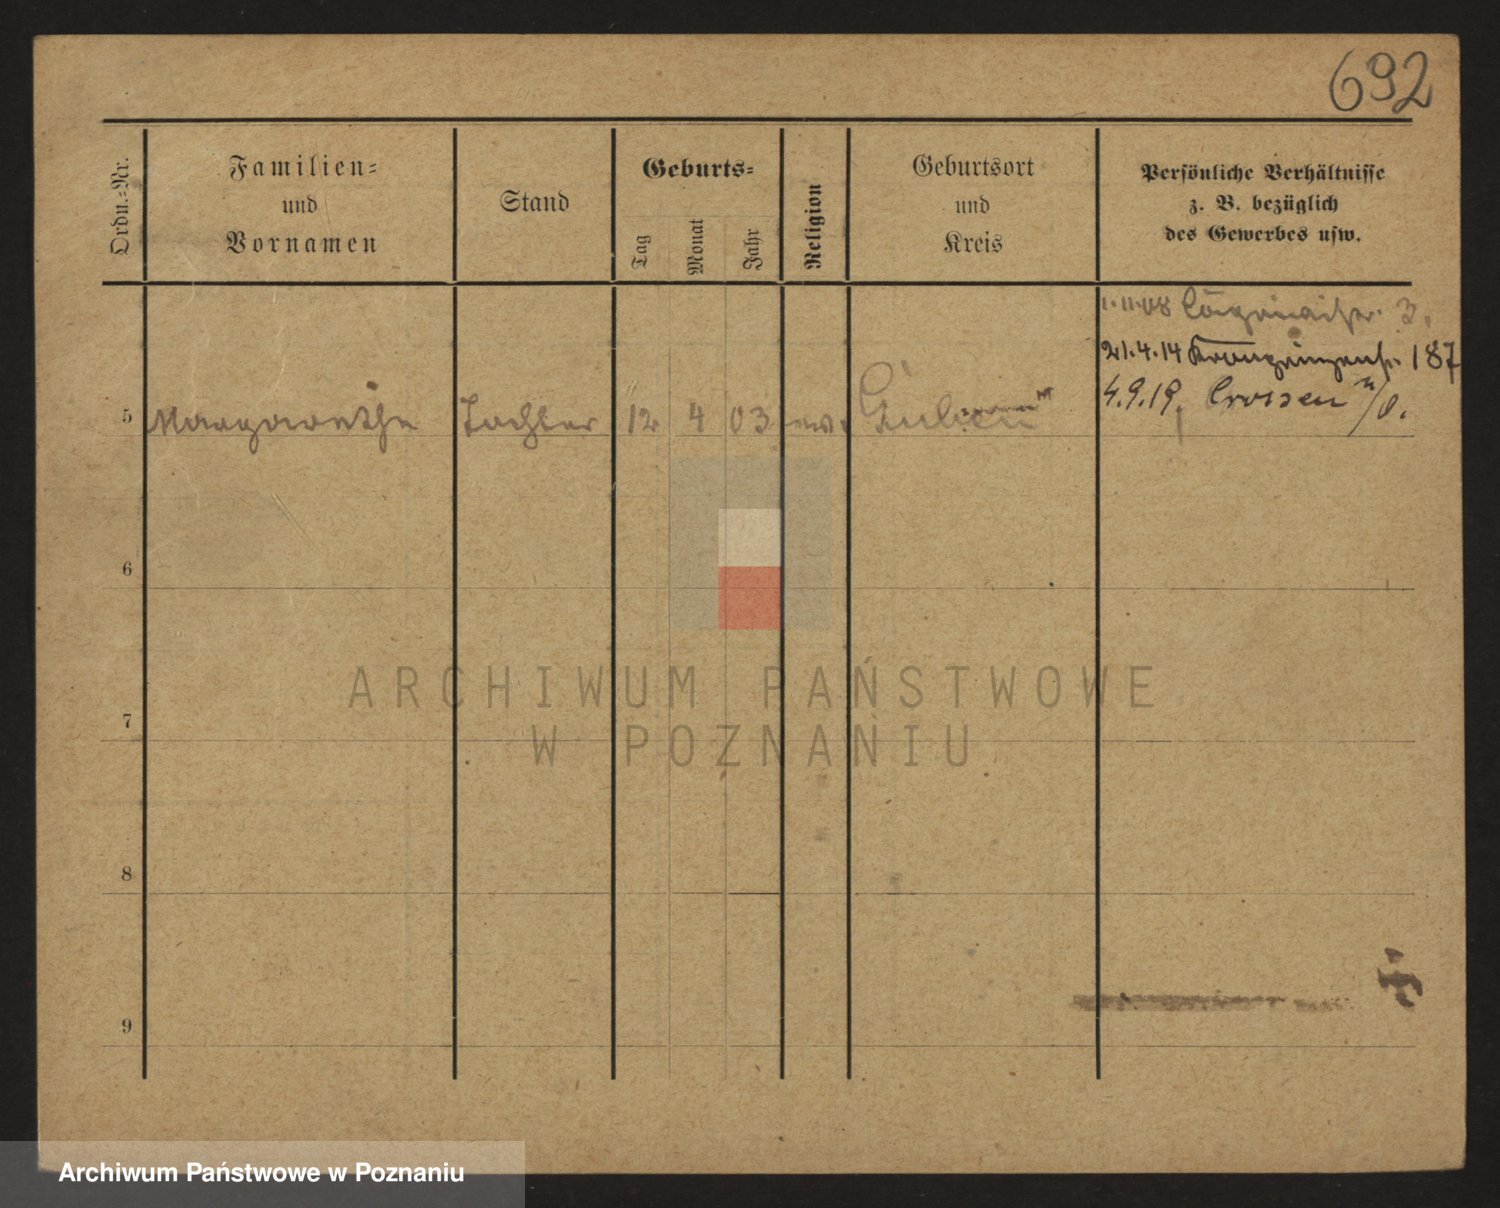 692
Ordn.-Nr.
Familien-
und
Vornamen
Stand
Geburts-
Tag
Monat
Jahr
Religion
Geburtsort
und
Kreis
Persönliche Verhältnisse
z. B. bezüglich
des Gewerbes usw.
1.11.08 3.
21.4.14 187
4.9.19, Crossen a/O.
5 Margarethe Tochter 12 4 03 ev. Guben
6
7
8
9
ARCHIWUM PAŃSTWOWE
W POZNANIU
Archiwum Państwowe w Poznaniu